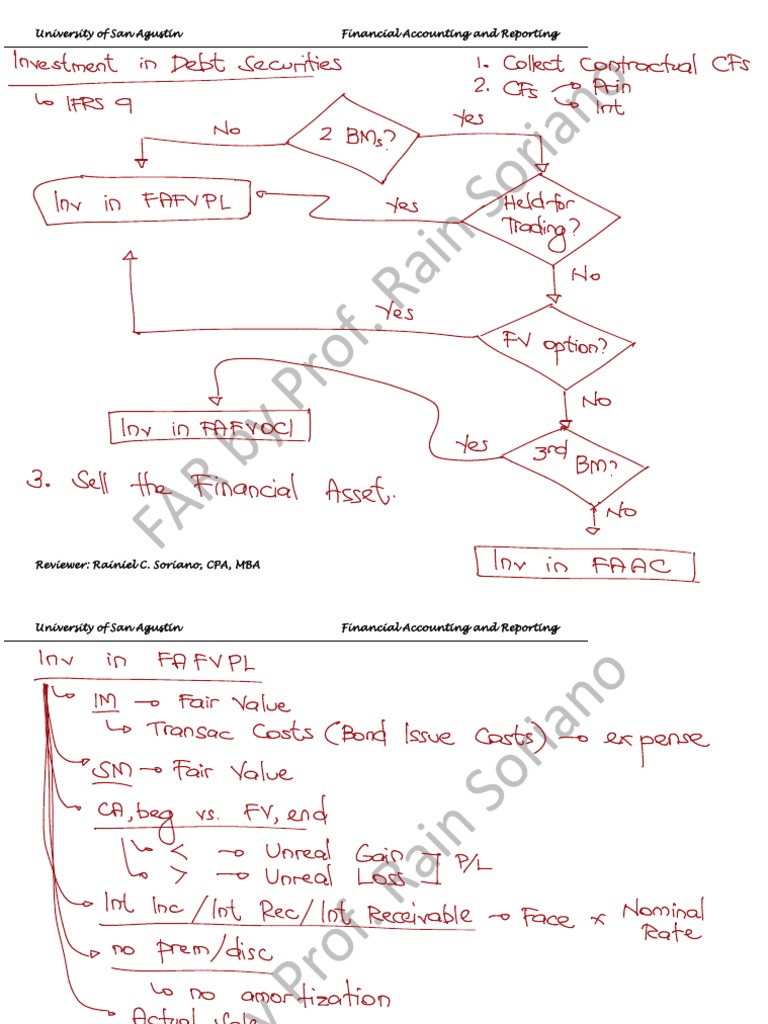 University of San Agustin Financial Accounting and Reporting
Investment in Debt Securities
↳ IFRS 9
1. Collect Contractual CFs
2. CFs → Prin
→ Int
No
2 BMs?
Yes
Inv in FAFVPL
Yes
Held for
Trading?
No
Yes
FV option?
No
Inv in FAFVOCI
Yes
3rd
BM?
3. Sell the Financial Asset.
No
Inv in FAAC
FAR by Prof. Rain Soriano
Reviewer: Rainiel C. Soriano, CPA, MBA
University of San Agustin Financial Accounting and Reporting
Inv in FAFVPL
↳ IM → Fair Value
↳ Transac Costs (Bond Issue Costs) → expense
SM → Fair Value
CA, beg vs. FV, end
↳ < → Unreal Gain
↳ > → Unreal Loss
P/L
Int Inc/Int Rec/Int Receivable → Face x Nominal
Rate
no prem/disc
↳ no amortization
Actual
y Prof. Rain Soriano